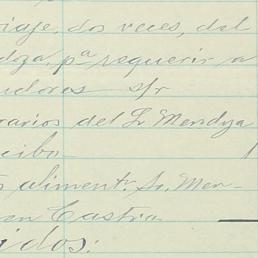 iaje, dos veces, del
doza, pª requerir a
udores s/r
rarios del Sr Mendoza
cibo
alimentr. Sr. Men-
en Castro
idos: